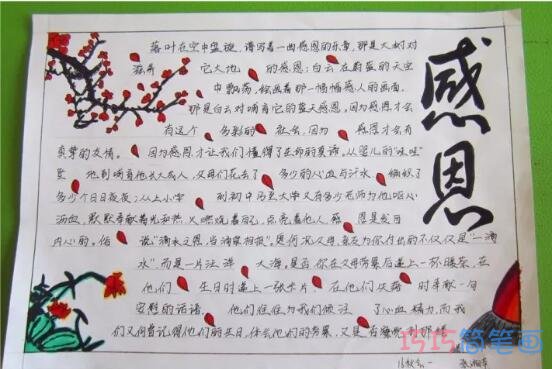 感恩
落叶在空中盘旋,谱写着一曲感恩的乐章,那是大树对
滋养它大地的感恩;白云在蔚蓝的天空
中飘荡,绘画着那一幅幅感人的画面,
那是白云对哺育它的蓝天感恩。因为感恩才会
有这个多彩的社会,因为感恩才会有
真挚的友情。因为感恩才让我们懂得了生命的真谛。从婴儿的“哇哇”
到哺育他长大成人,父母们花去了多少的心血与汗水,编织了
多少个日日夜夜;从上小学到初中乃至大学又有多少老师为他呕心
沥血,默默奉献着光和热,燃烧着自己,点亮着他人。感恩是发自
内心的。俗说“滴水之恩,当涌泉相报”。更何况父母,亲友为你付出的不仅仅是“一滴
水”,而是一片汪洋大海。是否你在父母劳累后递上一杯暖茶,在
他们生日时递上一张卡片,在他们失落时奉献一句
安慰的话语,他们往往为我们倾注了心血、精力,而我
们又何曾记得他们的生日,体会他们的劳累,又是否察觉到那缕
巧巧简笔画